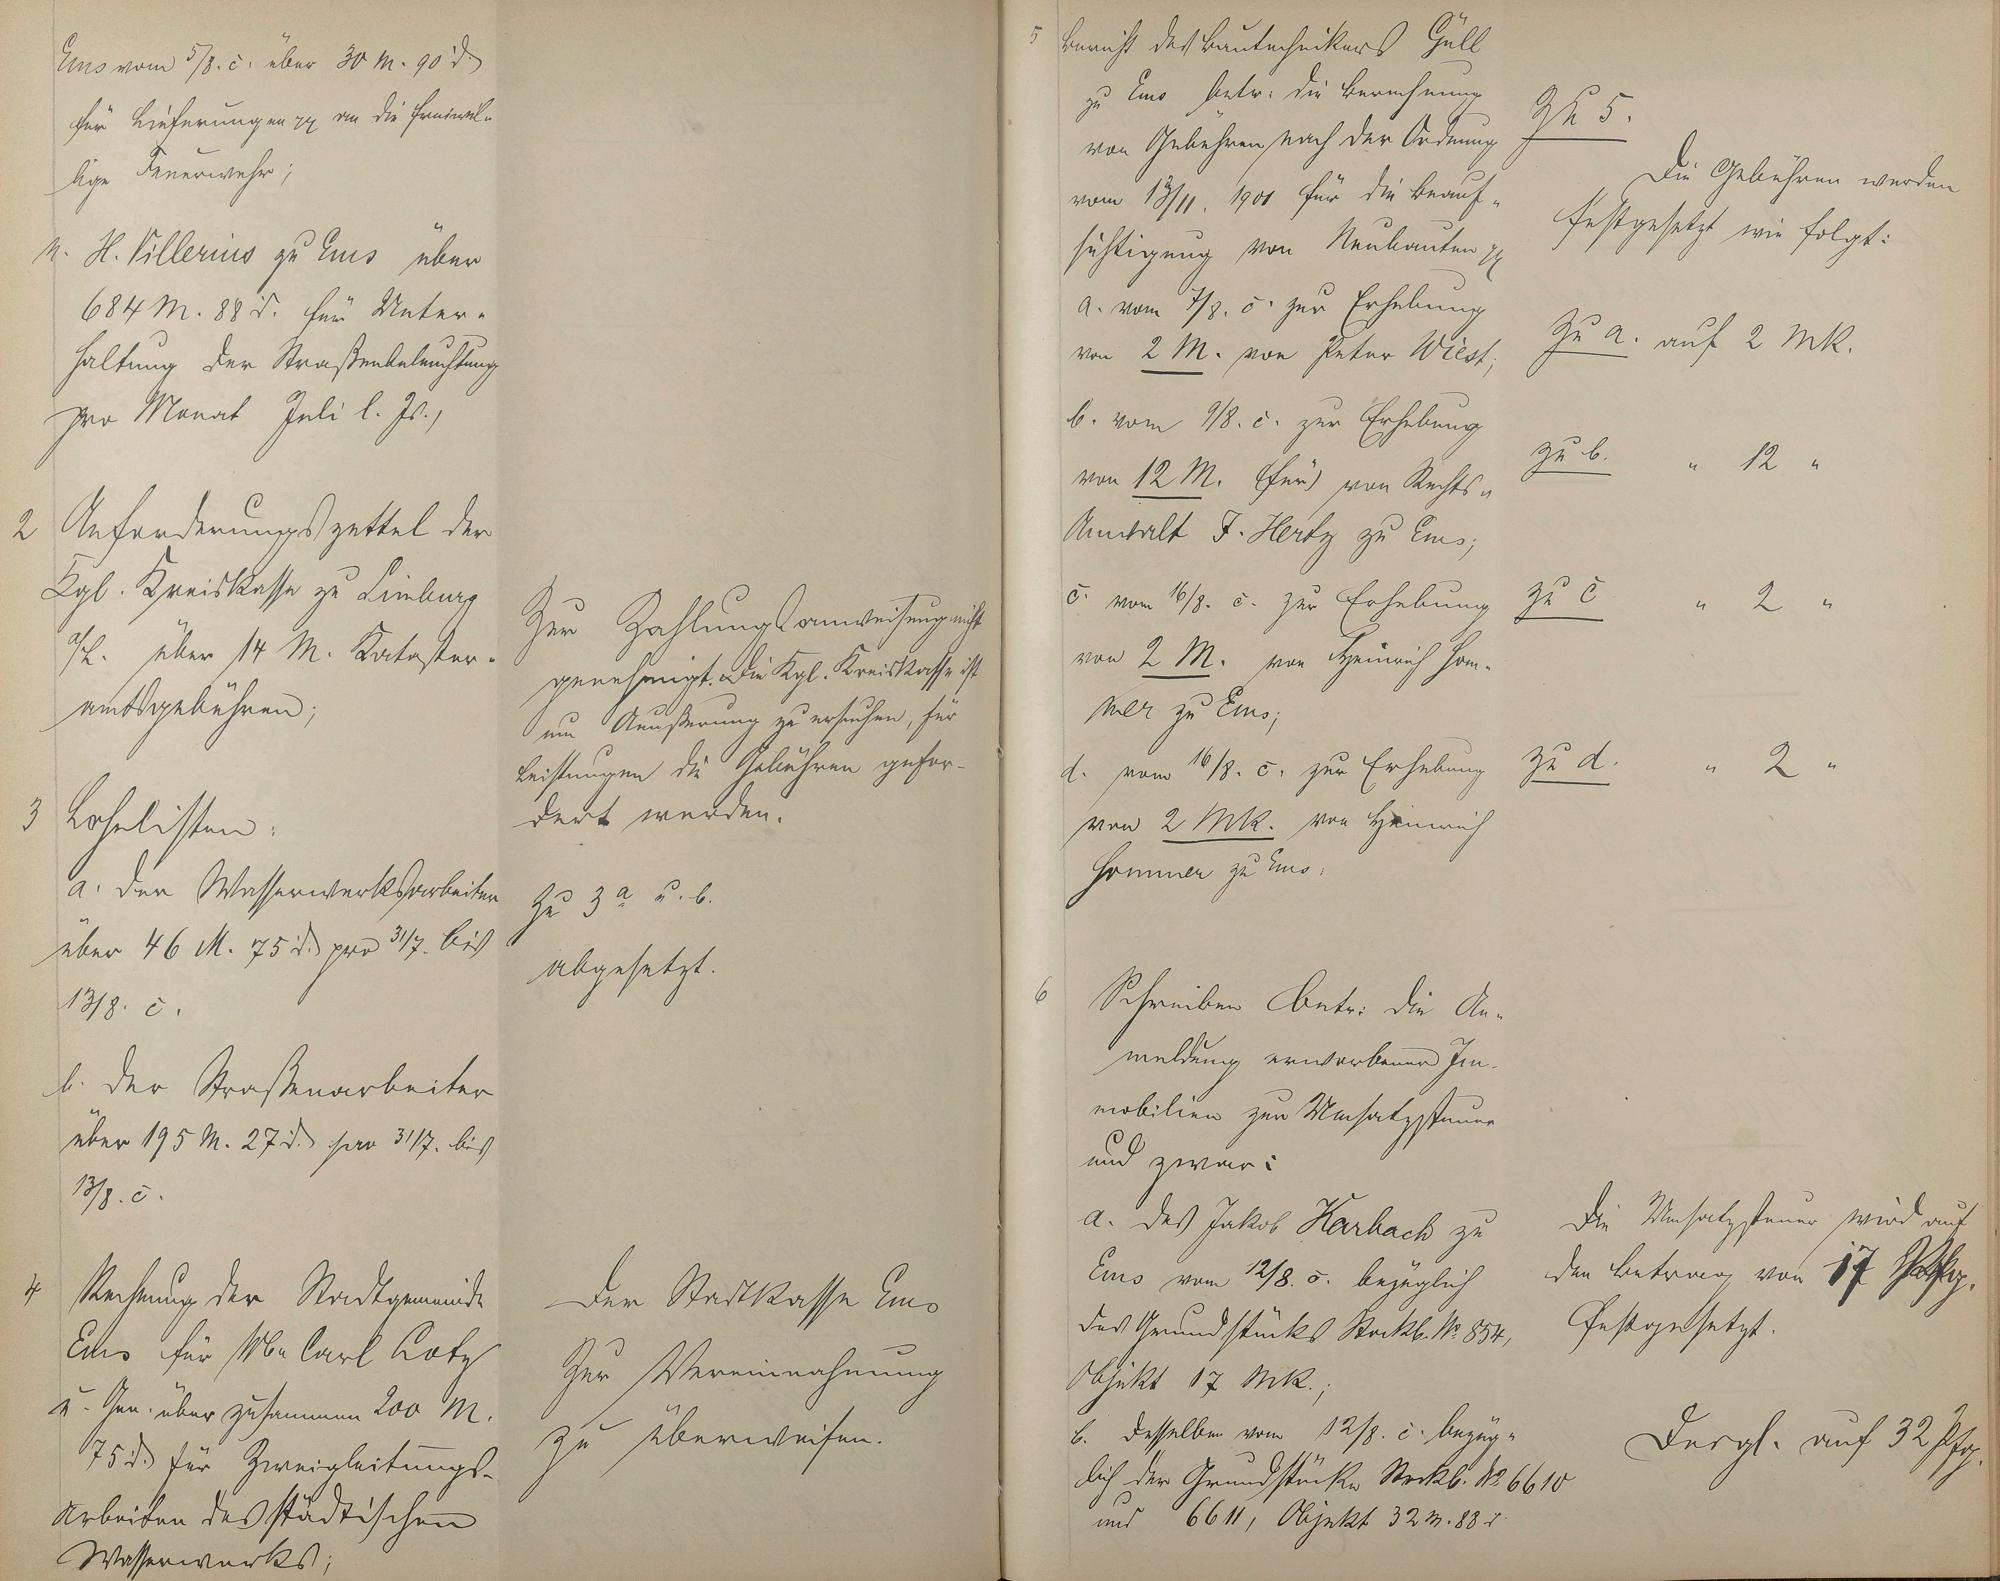 Ems vom 5/8. c. über 30 M. 90 d.
für Lieferungen pp an die freiwil-
lige Feuerwehr;
n. H. Villerius zu Ems über
684 M. 88 d. für Unter-
haltung der Straßenbeleuchtung
pro Monat Juli l. Js.,
2 Anforderungszettel der
Kgl. Kreiskasse zu Limburg
a/L. über 14 M. Kataster-
amtsgebühren;
Zur Zahlungsanweisung nicht
genehmigt. Die Kgl. Kreiskasse ist
um Aeußerung zu ersuchen, für
Leistungen die Gebühren gefor-
dert werden.
3 Lohnlisten:
a. der Wasserwerksarbeiter
über 46 M. 75 d. pro 31/7. bis
13/8. c.
zu 3 a u. b.
abgesetzt.
b. der Straßenarbeiter
über 195 M. 27 d. pro 31/7. bis
13/8. c.
4 Rechnung der Stadtgemeinde
Ems für Carl Lotz
u. Gen. über zusammen 200 M.
75 d. für Zweigleitungs-
arbeiten des städtischen
Wasserwerks;
Der Stadtkasse Ems
zur Vereinnahmung
zu überweisen.
5 Bericht des Bautechnikers Güll
zu Ems betr: die Berechnung
von Gebühren nach der Ordnung
vom 13/11. 1901 für die Beauf-
sichtigung von Neubauten pp
a. vom 7/8. c. zur Erhebung
von 2 M. von Peter Wiest;
b. vom 9/8. c. zur Erhebung
von 12 M. (für) von Rechts-
Anwalt F. Hertz zu Ems;
c. vom 16/8. c. zur Erhebung
von 2 M. von Heinrich Hom-
mer zu Ems;
d. vom 16/8. c. zur Erhebung
von 2 Mk. von Heinrich
Hommer zu Ems.
Zu 5.
Die Gebühren werden
festgesetzt wie folgt:
zu a. auf 2 Mk.
zu b. " 12 "
zu c " 2 "
zu d. " 2 "
6 Schreiben betr: die An-
meldung erworbener Im-
mobilien zur Umsatzsteuer
und zwar:
a. des Jakob Karbach zu
Ems vom 12/8. c. bezüglich
des Grundstücks Stockb. No 854,
Objekt 17 Mk.;
b. desselben vom 12/8. c. bezüg-
lich der Grundstücke Stockb. No 6610
und 6611, Objekt 32 M. 88 d.
Die Umsatzsteuer wird auf
den Betrag von 17 Pfg.
festgesetzt.
Desgl. auf 32 Pfg.